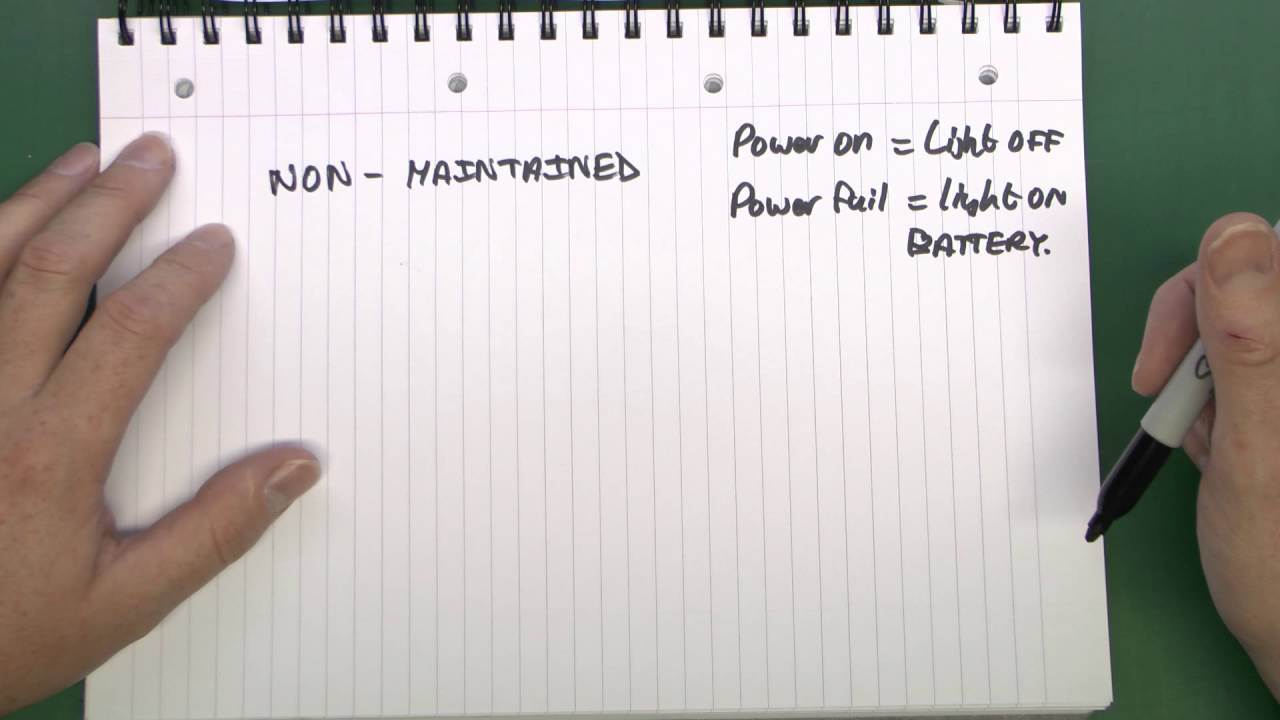 NON - MAINTAINED
Power on = Light OFF
Power fail = light ON
BATTERY.